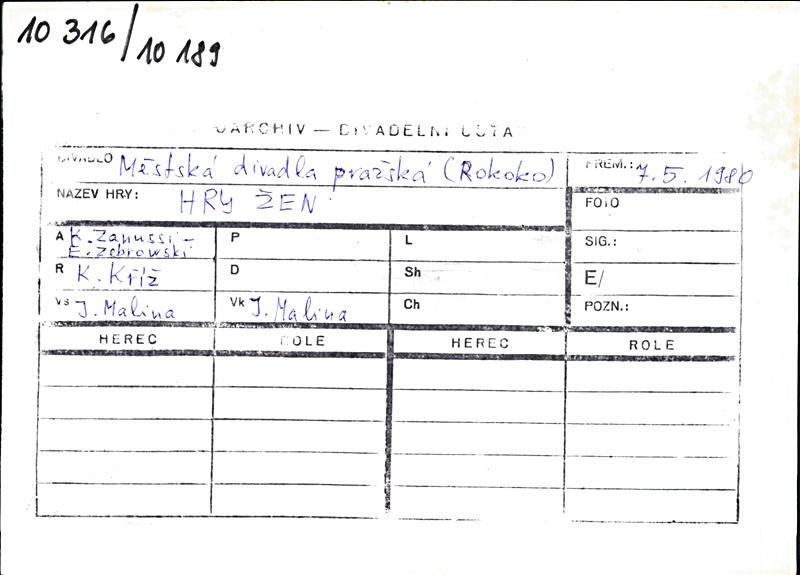 10 316/10 189
OARCHIV — DIVADELNÍ ÚSTA
DIVADLO Městská divadla pražská (Rokoko) PREM.: 7.5. 1980
NÁZEV HRY: HRY ŽEN FOTO
A K. Zanussi – P L SIG.:
E. Zebrowski
R K. Kříž D Sh E/
Vs J. Malina Vk J. Malina Ch POZN.:
HEREC ROLE HEREC ROLE